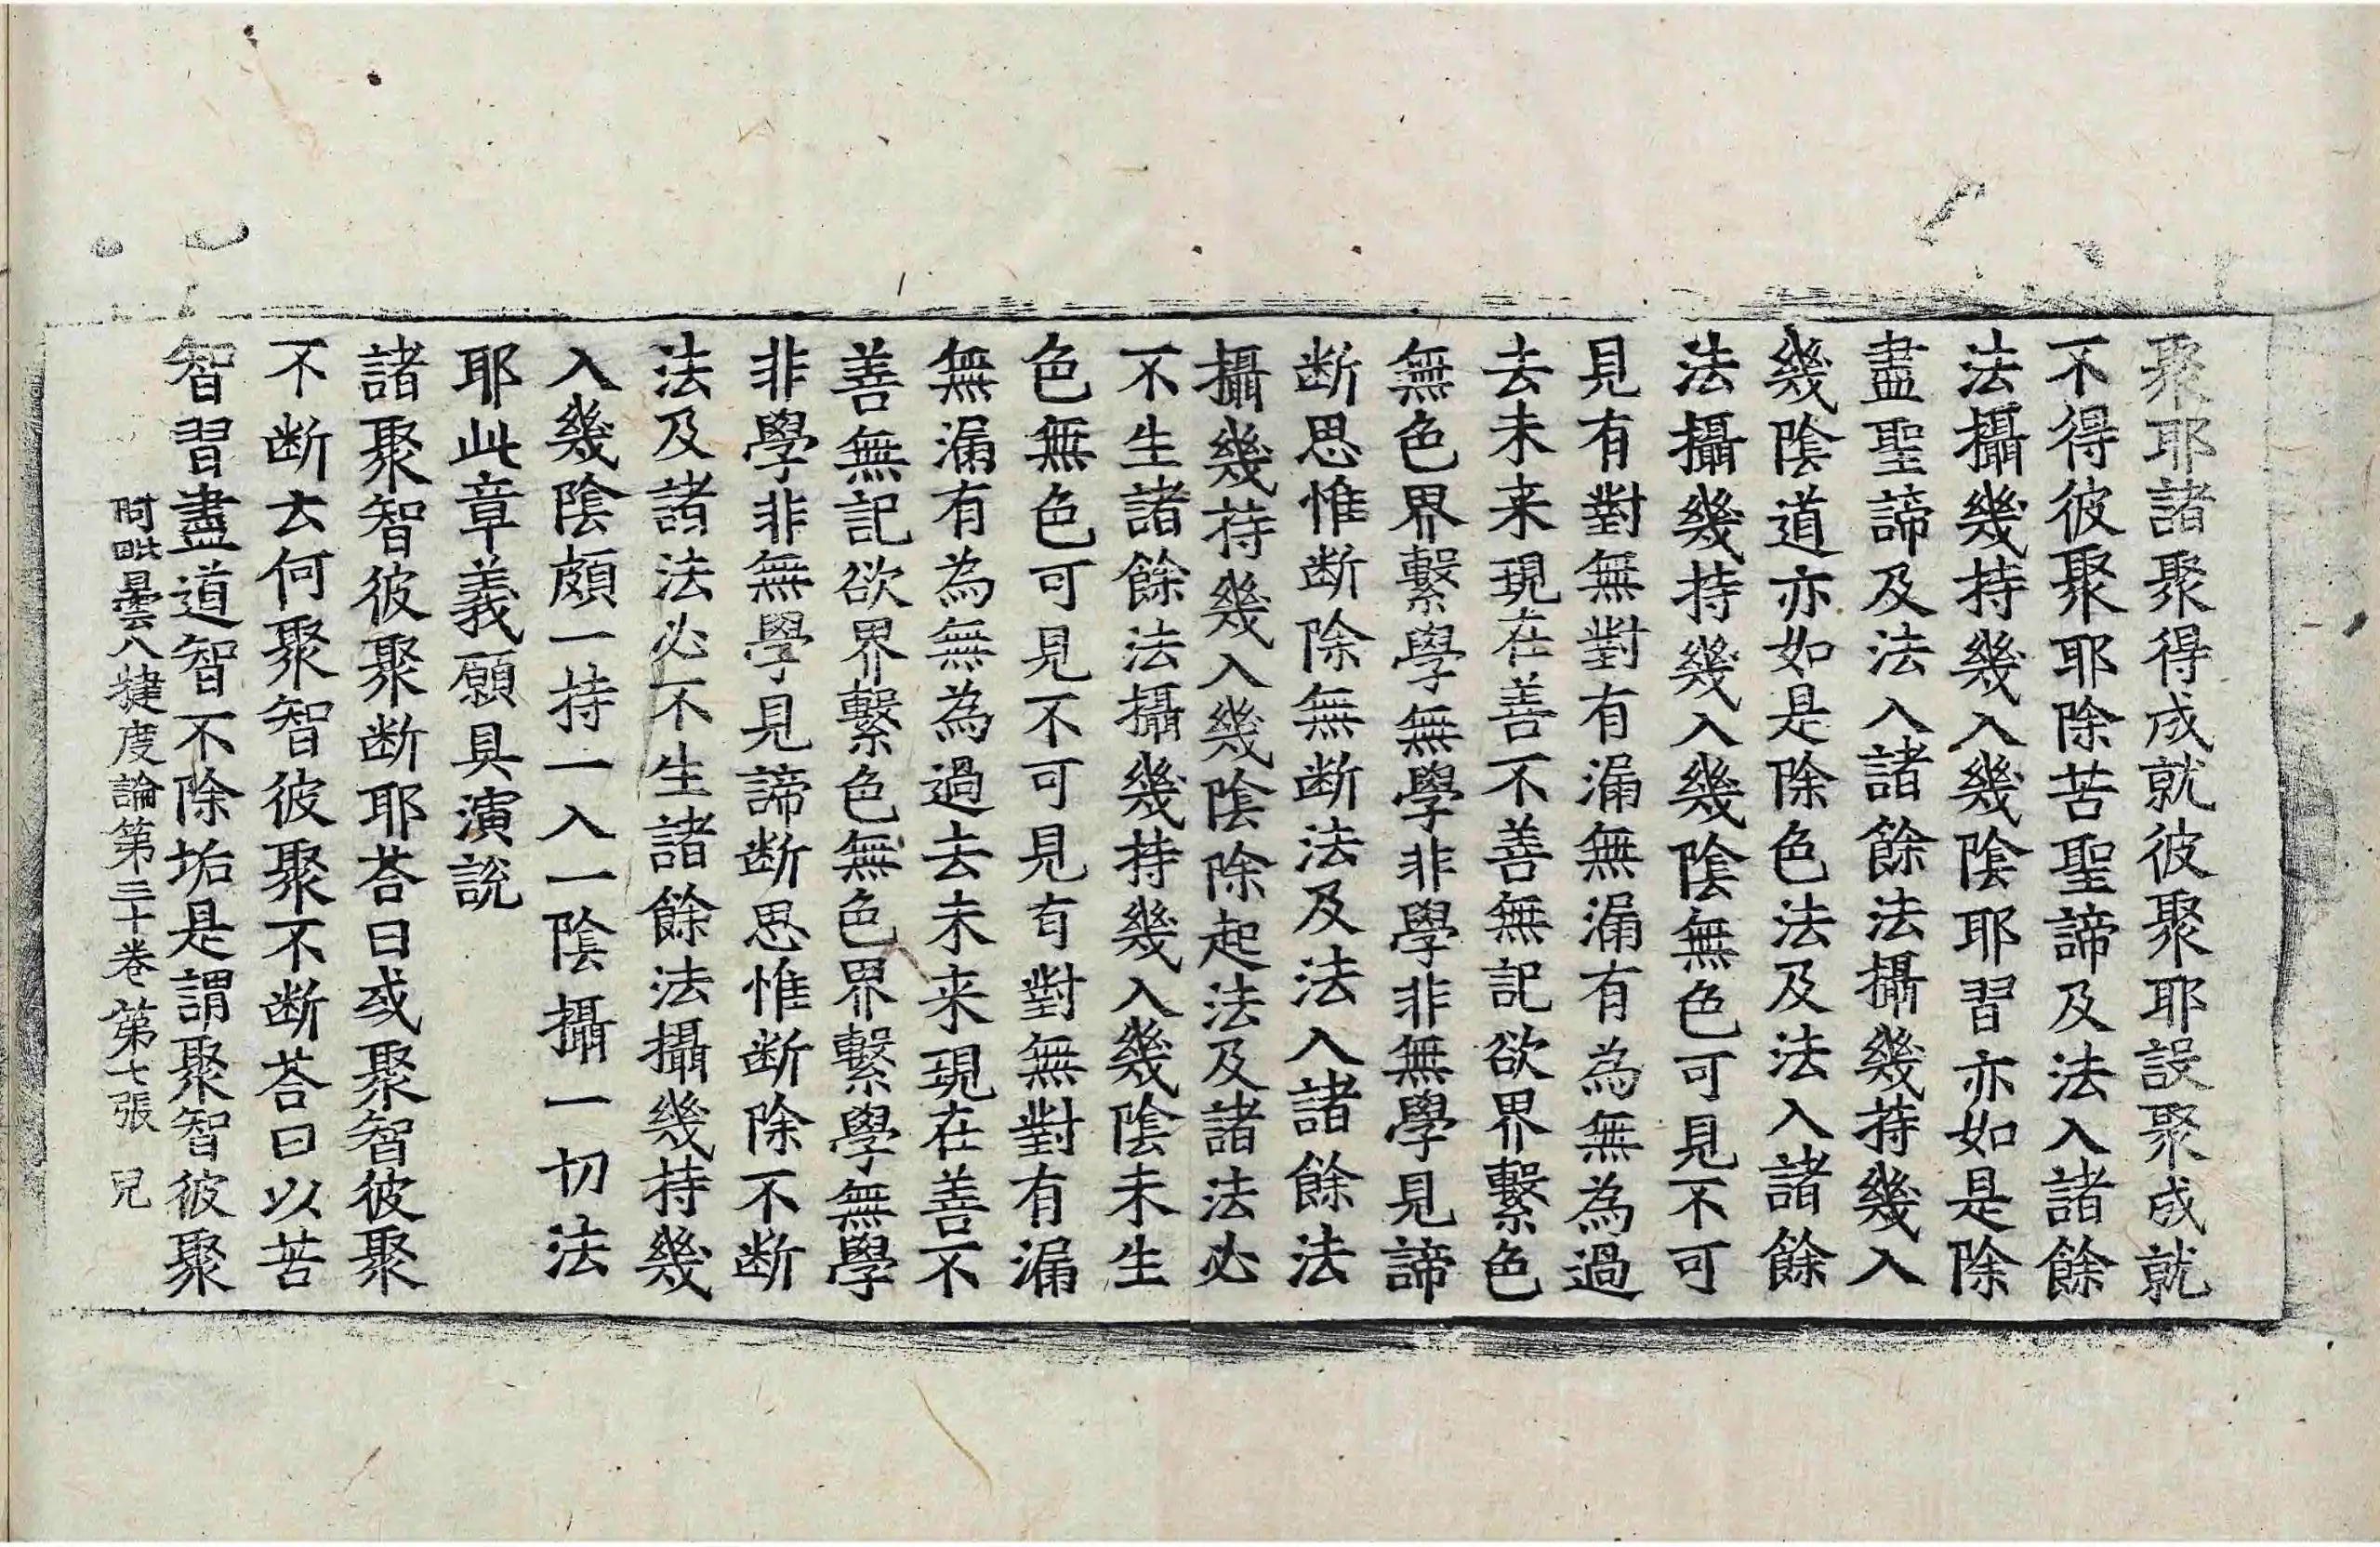 聚耶諸聚得成就彼聚耶設聚成就
不得彼聚耶除苦聖諦及法入諸餘
法攝幾持幾入幾陰耶習亦如是除
盡聖諦及法入諸餘法攝幾持幾入
幾陰道亦如是除色法及法入諸餘
法攝幾持幾入幾陰無色可見不可
見有對無對有漏無漏有為無為過
去未来現在善不善無記欲界繫色
無色界繫學無學非學非無學見諦
断思惟断除無断法及法入諸餘法
攝幾持幾入幾陰除起法及諸法必
不生諸餘法攝幾持幾入幾陰未生
色無色可見不可見有對無對有漏
無漏有為無為過去未来現在善不
善無記欲界繫色無色界繫學無學
非學非無學見諦断思惟断除不断
法及諸法必不生諸餘法攝幾持幾
入幾陰頗一持一入一陰攝一切法
耶此章義願具演説
諸聚智彼聚断耶荅曰或聚智彼聚
不断云何聚智彼聚不断荅曰以苦
智習盡道智不除垢是謂聚智彼聚
阿毗曇八揵度論第三十卷 第七張 兒